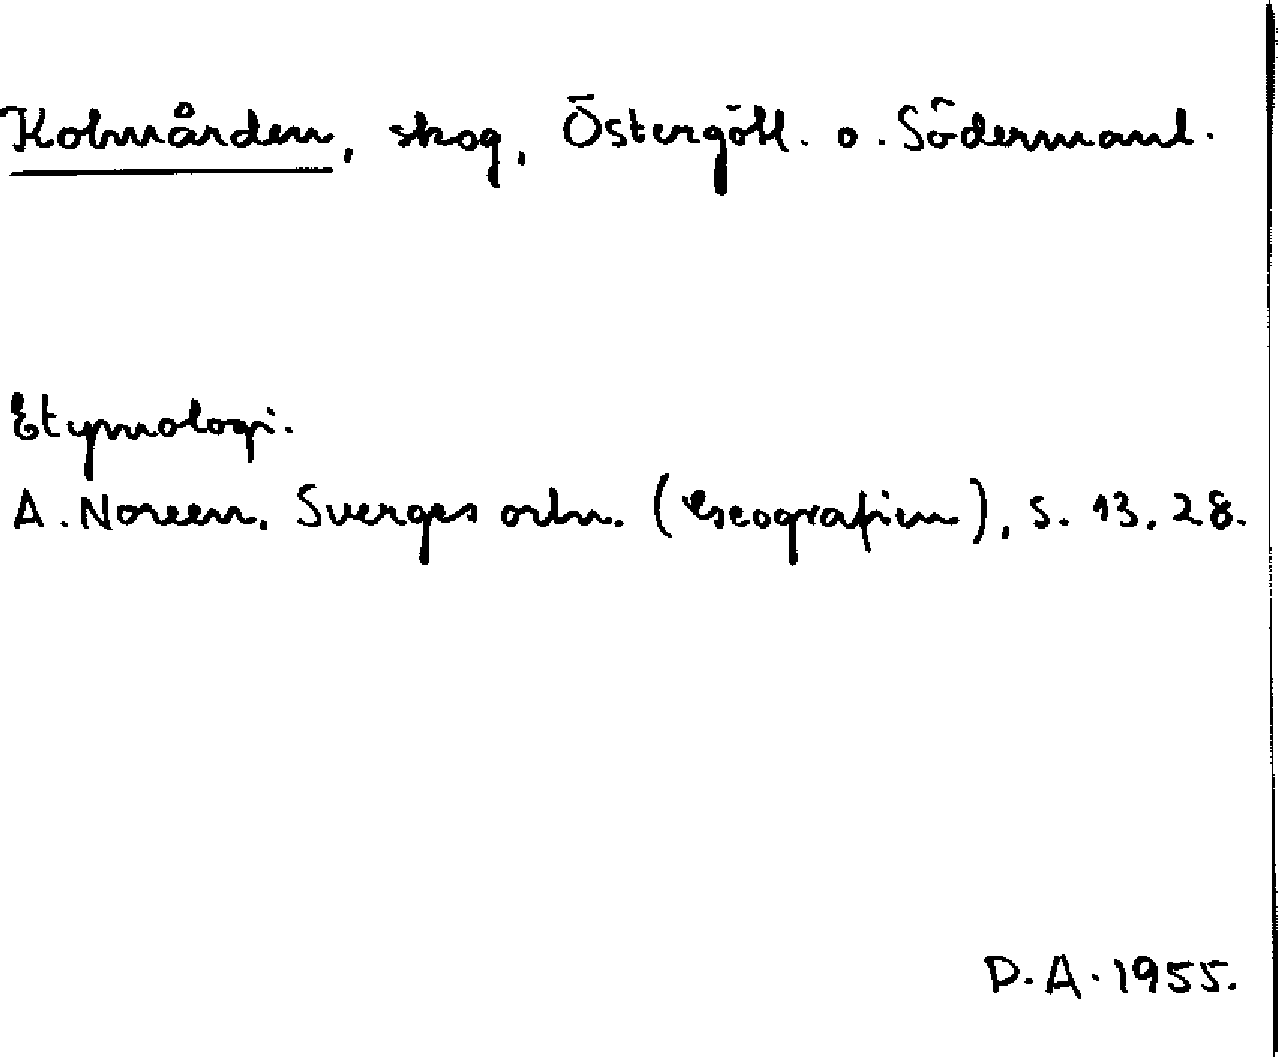 Kolmården, skog, Östergötl. o. Södermanl.
Etymologi.
A. Noreen, Sverges ortn. (Geografien), s. 13, 28.
D. A. 1955.